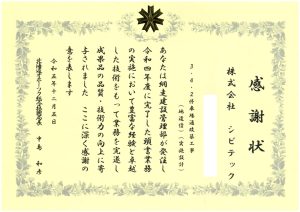 感謝状
株式会社 シビテック
3・4・2停車場通改築工事
(地道債)(実施設計)
あなたは網走建設管理部が発注し
令和四年度に完了した類書業務
の実施において豊富な経験と卓越
した技術をもって業務を完遂し
成果品の品質・技術力の向上に寄
与されました ここに深く感謝の
意を表します
令和五年十二月五日
北海道オホーツク総合振興局長
中島 和彦